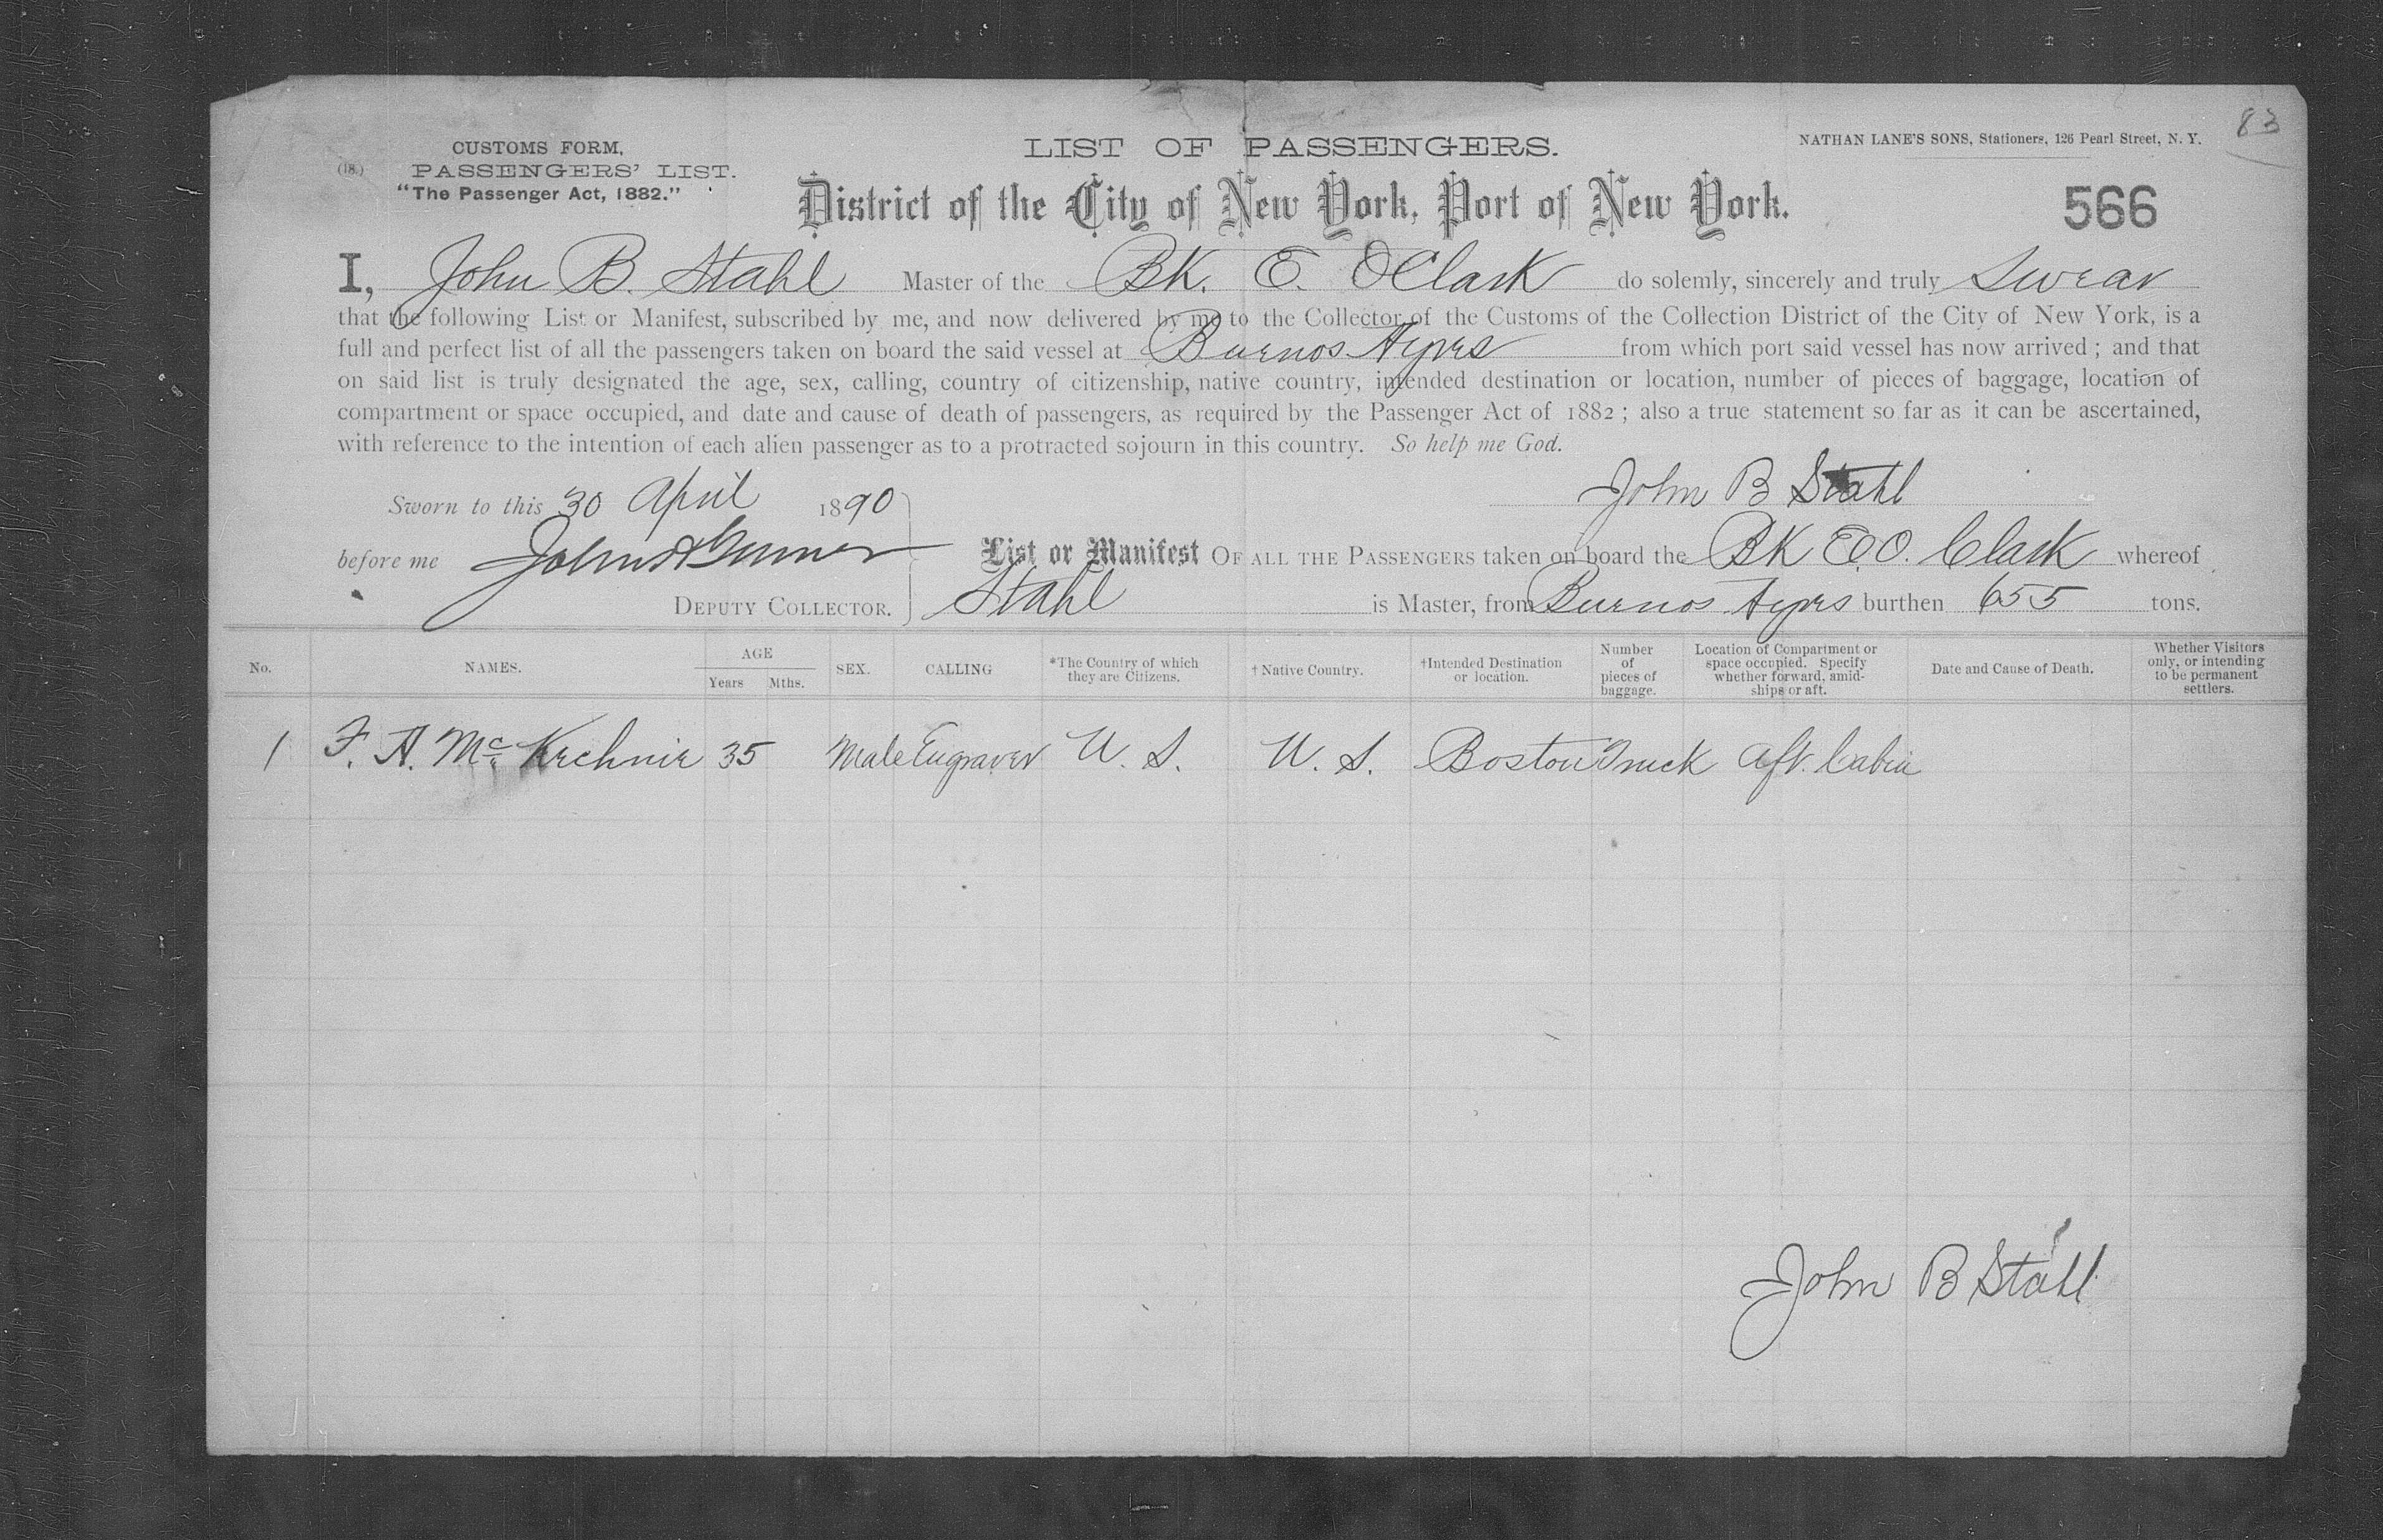 83
CUSTOMS FORM,
(18.) PASSENGERS' LIST.
"The Passenger Act, 1882."
LIST OF PASSENGERS.
NATHAN LANE'S SONS, Stationers, 126 Pearl Street, N. Y.
District of the City of New York, Port of New York.
566
I, John B. Stahl Master of the BK. E. O Clark do solemly, sincerely and truly Swear
that the following List or Manifest, subscribed by me, and now delivered by me to the Collector of the Customs of the Collection District of the City of New York, is a
full and perfect list of all the passengers taken on board the said vessel at Buenos Ayres from which port said vessel has now arrived ; and that
on said list is truly designated the age, sex, calling, country of citizenship, native country, intended destination or location, number of pieces of baggage, location of
compartment or space occupied, and date and cause of death of passengers, as required by the Passenger Act of 1882 ; also a true statement so far as it can be ascertained,
with reference to the intention of each alien passenger as to a protracted sojourn in this country. So help me God.
John B Stahl
Sworn to this 30 April 1890
before me John
DEPUTY COLLECTOR.
List or Manifest OF ALL THE PASSENGERS taken on board the BK E.O. Clark whereof
Stahl is Master, from Buenos Ayres burthen 655 tons.
No. NAMES. AGE Years Mths. SEX. CALLING *The Country of which they are Citizens. † Native Country. †Intended Destination or location. Number of pieces of baggage. Location of Compartment or space occupied. Specify whether forward, amid-ships or aft. Date and Cause of Death. Whether Visitors only, or intending to be permanent settlers.
1 F. A. Mc Kechnie 35 Male Engraver U. S. U. S. Boston Trunk Aft. Cabin
John B Stahl